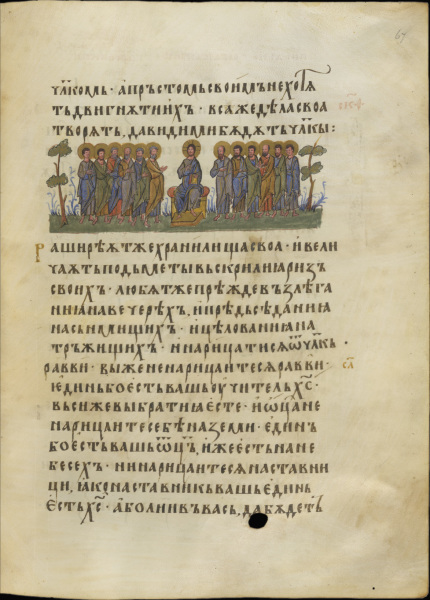 67
чл҃комь · а пръстомь своимъ не хотѧ
ть двигнѫти ихъ · всѧ же дѣла своа
творѧть, да видими бѫдѫть чл҃кы :
Раширѣѫт же хранилища своа · и вели
чаѫть подьметы въскрилиꙗ ризъ
своихъ · любѧт же прѣждевъзлѣга
ниа на вечерѣхъ, и прѣдьсѣданиа
на сънмищихъ · и цѣлованиа на
тръжищихъ · и нарицатисѧ ѿ чл҃кь ·
равви · вы же не нарицаитесѧ равви ·
единь бо есть вашь оучитель х҃с ·
вьси же вы братиа есте · и ѿца не
нарицаите себѣ на земи · единъ
бо есть вашь ѿц҃ъ, иже есть на не
бесехъ · ни нарицаитесѧ наставни
ци, ꙗко наставникь вашь единь
есть х҃с · а болии въ вась, да бѫдеть